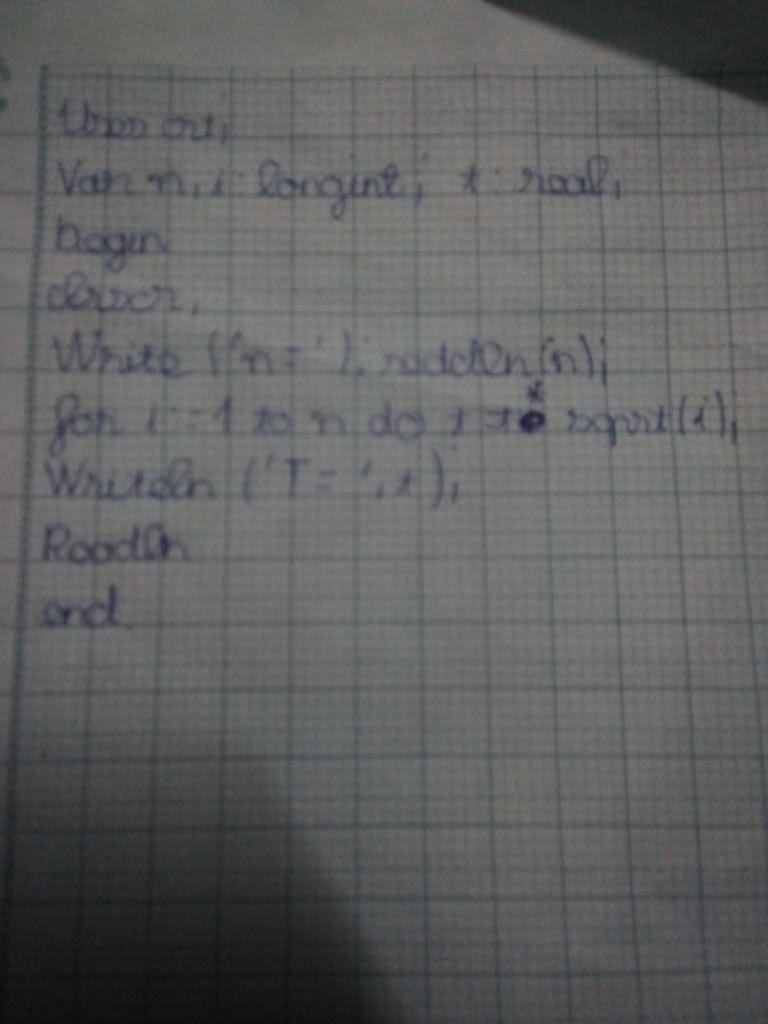 Uses crt;
Var n, i: longint; t: real;
begin
clrscr;
Write ('n= '); readln(n);
for i:=1 to n do t * sqrt(i);
Writeln ('T= ', t);
Readln
end